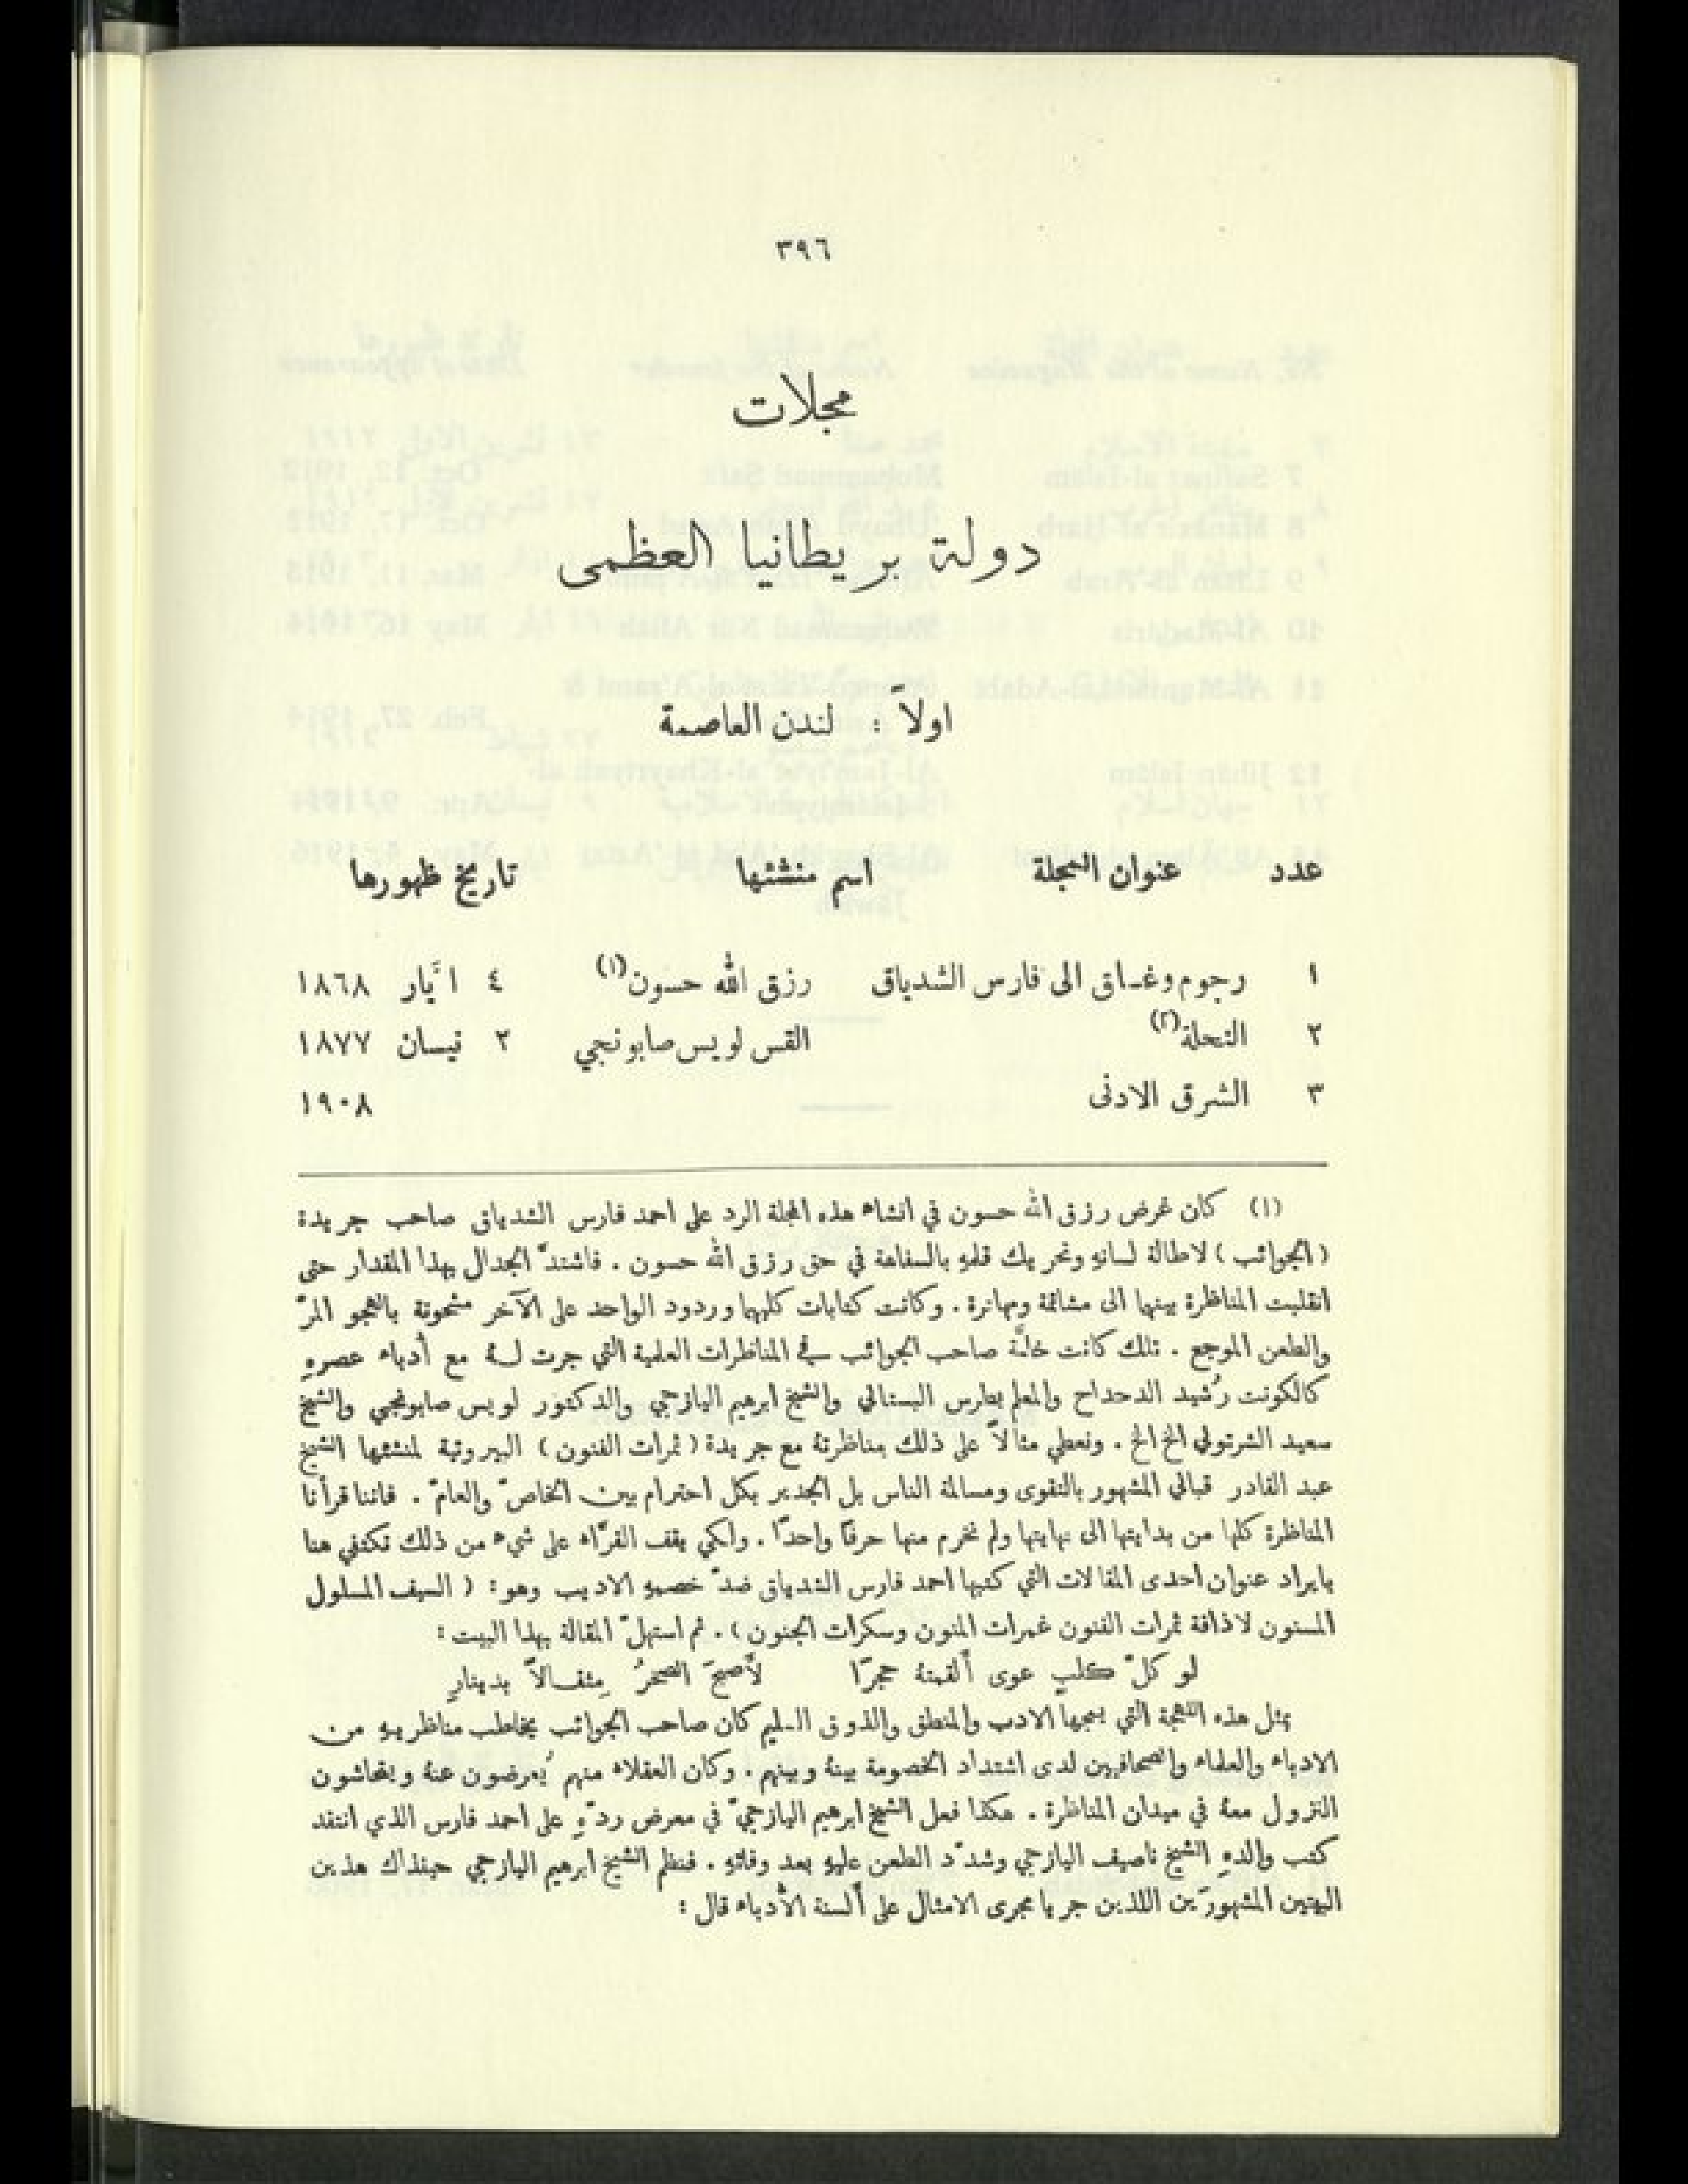 ٣٩٦
مجلات
دولة بريطانيا العظمى
اولاً : لندن العاصمة
عدد عنوان المجلة اسم منشئها تاريخ ظهورها
١ رجوم وغساق الى فارس الشدياق رزق الله حسون(١) ٤ ايّار ١٨٦٨
٢ النحلة(٢) القس لويس صابونجي ٢ نيسان ١٨٧٧
٣ الشرق الادنى ١٩٠٨
(١) كان غرض رزق الله حسون في انشاء هذه المجلة الرد على احمد فارس الشدياق صاحب جريدة
(الجوائب) لاطالة لسانهِ وتحريك قلمهِ بالسفاهة في حق رزق الله حسون . فاشتدّ الجدال بهذا المقدار حتى
انقلبت المناظرة بينهما الى مشاتمة ومهاترة . وكانت كتابات كليهما وردود الواحد على الآخر مشحونة بالهجو المرّ
والطعن الموجع . تلك كانت خلَّة صاحب الجوائب في المناظرات العلمية التي جرت لهُ مع أدباء عصرهِ
كالكونت رُشيد الدحداح والمعلم بطرس البستاني والشيخ ابرهيم اليازجي والدكتور لويس صابونجي والشيخ
سعيد الشرتوني الخ الخ . ونعطي مثالاً على ذلك مناظرتهُ مع جريدة (ثمرات الفنون) البيروتية لمنشئها الشيخ
عبد القادر قباني المشهور بالتقوى ومسالمة الناس بل الجدير بكل احترام بين الخاصّ والعامّ . فاننا قرأنا
المناظرة كلها من بدايتها الى نهايتها ولم نخرم منها حرفًا واحدًا . ولكي يقف القرّاء على شيء من ذلك نكتفي هنا
بايراد عنوان احدى المقالات التي كتبها احمد فارس الشدياق ضدّ خصمهِ الاديب وهو : (السيف المسلول
المسنون لاذاقة ثمرات الفنون غمرات المنون وسكرات الجنون) . ثم استهلّ المقالة بهذا البيت :
لو كلّ كلبٍ عوى ألقمتهُ حجرًا لأصبحَ الصخرُ مِثقالاً بدينارِ
بمثل هذه اللهجة التي يمجها الادب والمنطق والذوق السليم كان صاحب الجوائب يخاطب مناظريهِ من
الادباء والعلماء والصحافيين لدى اشتداد الخصومة بينهُ وبينهم . وكان العقلاء منهم يُعرضون عنهُ ويتحاشون
النزول معهُ في ميدان المناظرة . هكذا فعل الشيخ ابرهيم اليازجيّ في معرض ردّهِ على احمد فارس الذي انتقد
كتب والدهِ الشيخ ناصيف اليازجي وشدّد الطعن عليهِ بعد وفاتهِ . فنظم الشيخ ابرهيم اليازجي حينذاك هذين
البيتين المشهورَين اللذين جريا مجرى الامثال على ألسنة الأدباء قال :